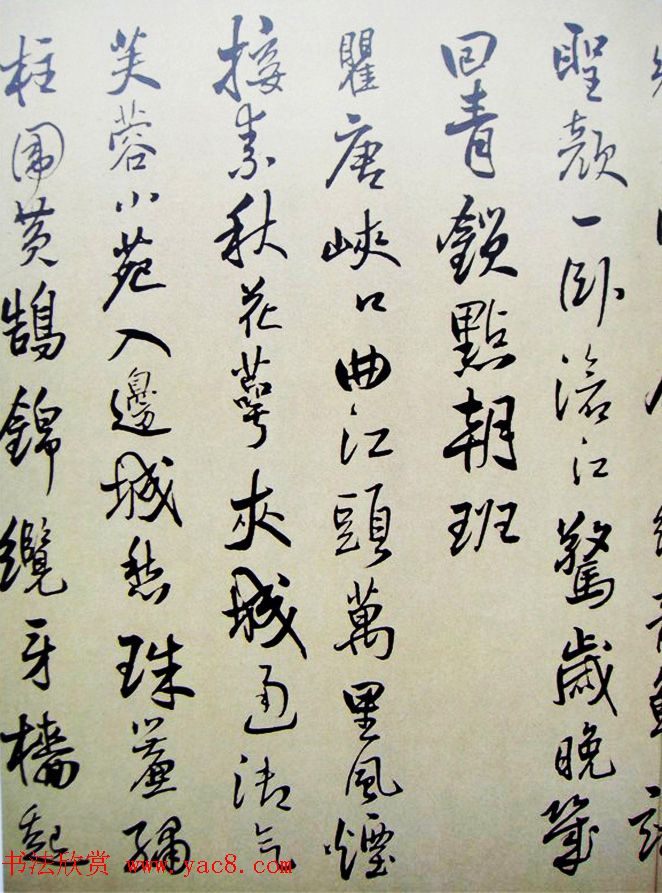 聖顏一臥滄江驚歲晚幾
回青鎖點朝班
瞿唐峽口曲江頭萬里風煙
接素秋花萼夾城通御氣
芙蓉小苑入邊城愁珠簾繡
柱圍黃鵠錦纜牙檣起
书法欣赏 www.yac8.com